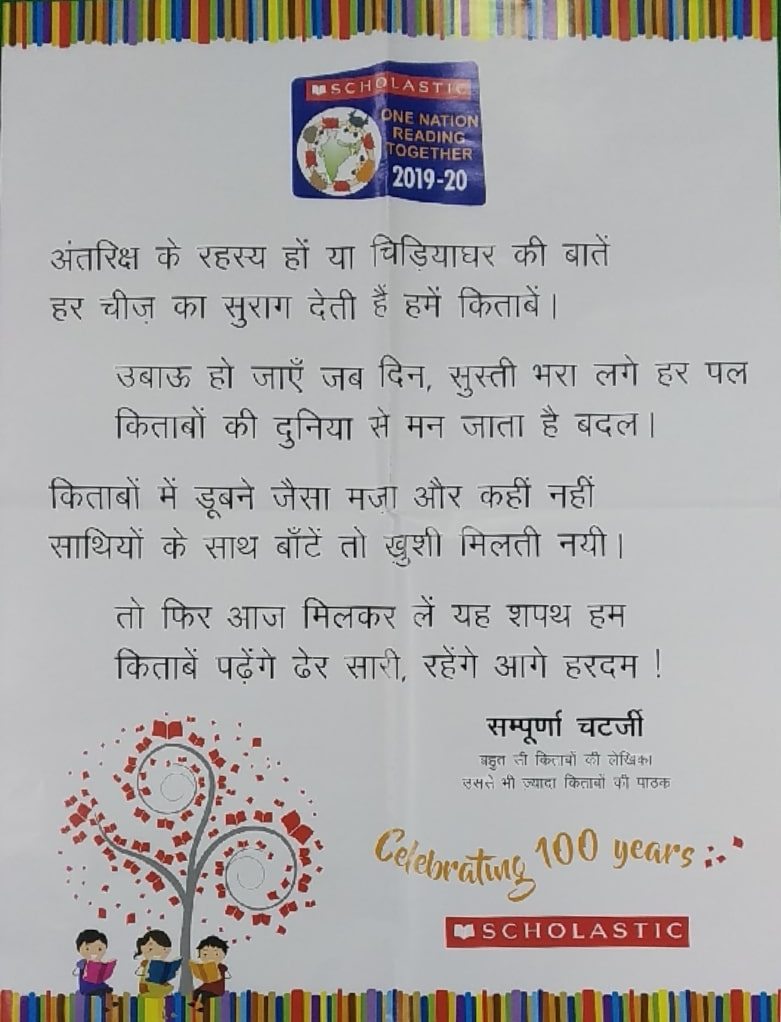 SCHOLASTIC
ONE NATION
READING
TOGETHER
2019-20
अंतरिक्ष के रहस्य हों या चिड़ियाघर की बातें
हर चीज़ का सुराग देती हैं हमें किताबें।
उबाऊ हो जाएँ जब दिन, सुस्ती भरा लगे हर पल
किताबों की दुनिया से मन जाता है बदल।
किताबों में डूबने जैसा मज़ा और कहीं नहीं
साथियों के साथ बाँटें तो ख़ुशी मिलती नयी।
तो फिर आज मिलकर लें यह शपथ हम
किताबें पढ़ेंगे ढेर सारी, रहेंगे आगे हरदम !
सम्पूर्णा चटर्जी
बहुत सी किताबों की लेखिका
उससे भी ज्यादा किताबों की पाठक
Celebrating 100 years
SCHOLASTIC